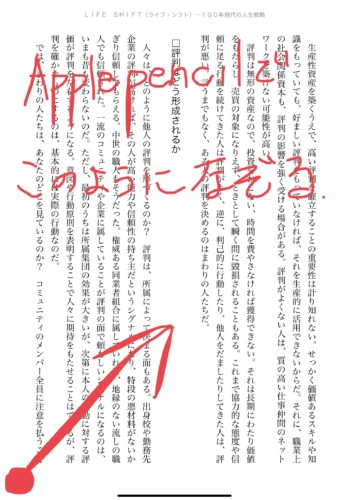 ＬＩＦＥ ＳＨＩＦＴ（ライフ・シフト）―100年時代の人生戦略
Applepencilで
このように
生産性資産を築くうえで、高い評判を確立することの重要性は計り知れない。せっかく価値あるスキルや知
識をもっていても、好ましい評判をもっていなければ、それを生産的に活用できないからだ。それに、職業上
の社会関係資本も、評判の影響を強く受ける場合がある。評判がよくない人は、質の高い仕事仲間のネット
ワークを築けない可能性が高い
評判は無形の資産なので、投資 時間を費やさなければ獲得できない。それは長期にわたり価値
をもたらし、売買の対象になりえず、ときとして瞬く間に毀損されることもある。これまで協力的な態度や信
頼に足る行動を続けてきた人は評判が 逆に、利己的に行動したり、他人をだましたりしてきた人は、評
判が悪い。言うまでもなく、ある人の評判を決めるのはまわりの人たちだ。
□評判はどう形成されるか
人々はどのように他人の評判を形づくるのか？ 評判は、所属によって決まる面もある。出身校や勤務先
企業の評判が高ければ、その人が高い能力や信頼性の持ち主だというシグナルになり、特段の悪材料がないか
ぎり信頼してもらえる。中世の職人もそうだった。権威ある同業者組合に属していれば、地縁のない流しの職
人でも信頼された。一流のコミュニティや企業に属していることが評判の面で頼もしいシグナルになるのは、
いまも昔も変わらないのだ。ただし、最初のうちは所属集団の効果が大きいが、次第に本人の行動に対する評
価が評判を左右するようになる。意図や行動原則を表明することで人々に期待をもたせることはできるが、評
判を確かなものにするのは、基本的には実際の行動なのだ。
ではまわりの人たちは、あなたのどこを見ているのか？ コミュニティのメンバー全員に注意を払う